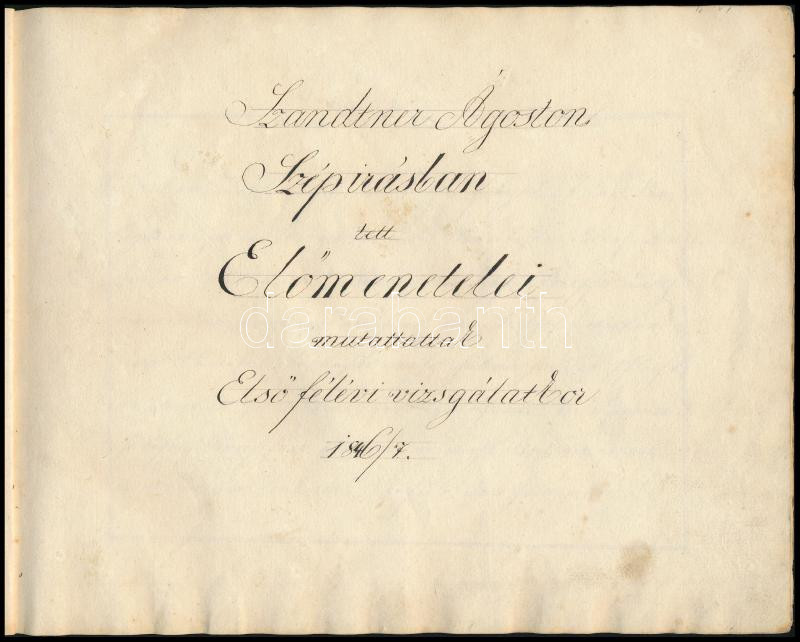 Szandtner Ágoston
Szépirásban
tett
Előmenetelei
mutattattak
Első félévi vizsgálatkor
1846/7.
darabanth